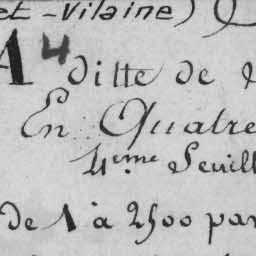 et-Vilaine)
A 4 ditte de
En Quatre
4eme Feuill
de 1 à 2500 par